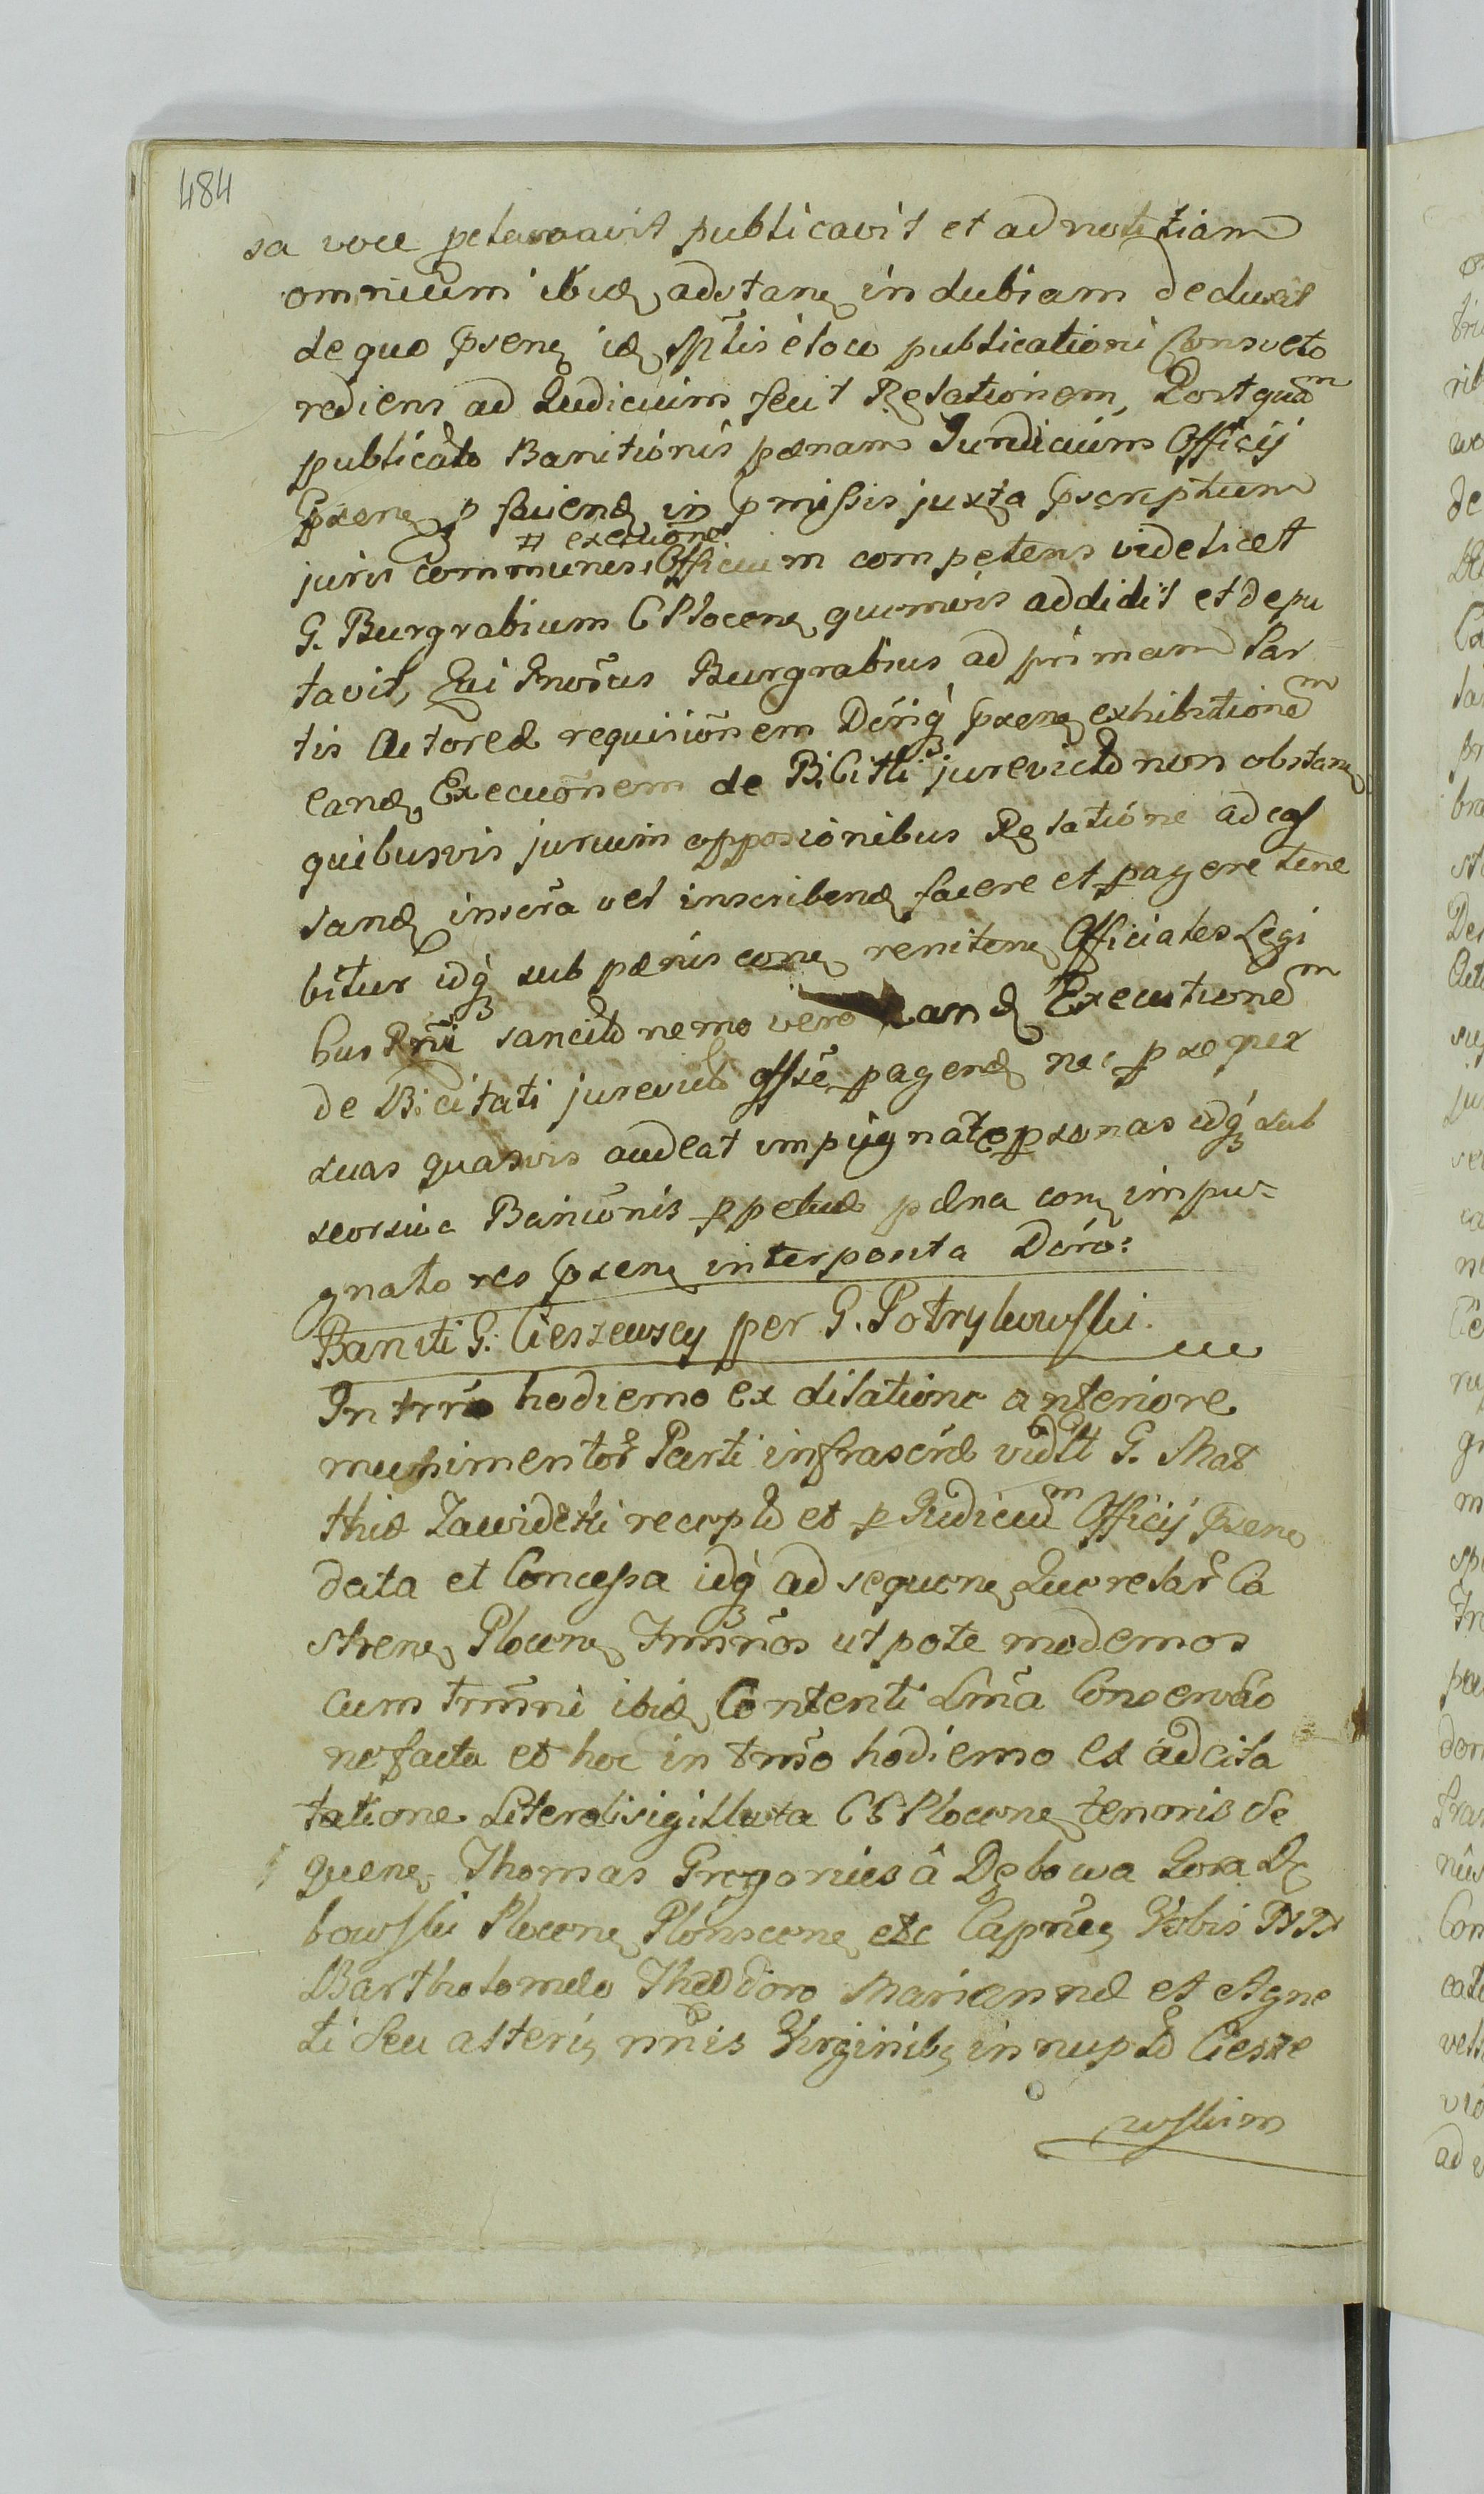 484
sa voce proclamavit publicavit et ad notitiam
omnium ibid adstan indubiam deduxit
de quo praesen id Mrlis e loco publicationi consveto
rediens ad Judicium fecit Relationem, Postquam
publicato Banitionis paenam Jundicium Officij
praesen p facien in praemissis juxta praescriptum
# exectione
juris communis Officium competens videlicet
G. Burgrabium CPlocen quemvis addidit et depu
tavit, Qui Burgrabius ad primam Par
tis Actoreae requisionem Dnig praesen exhibitionem
eand Execuonem de B. Citti jurevicto non obstan
quibusvis jurium opposionibus Relatione ad eas
sand inscra vel inscribend facere et pagere tene
bitur idq sub paenis con reniten Officiales Legi
bus Rni sancito nemo vero eand Executionem
de Bi citati jurevicto pagend nec per
suas quasvis audeat impugnato personas idq sub
seorsiva Banionis ppetuae paena con impu-
gnatores praesen interposita Doro:
Baniti G. Cieszewscy per G. Potrykowski.
In trro hodierno ex dilatione anteriore
munimentor Parti infrascrae vidlt G. Mat
thiae Zawidzki recepto et p Judicium Officij praesen
data et Concessa idq ad sequen Querelar Ca
stren Plocen Trmnos utpote modernos
cum trmni ibid Contenti Lma Conservao
ne facta et hoc in trmo hodierno ex adcita
tatione Literali sigillata CSPlocen tenoris se
quen Thomas Gregorius â Dębowa Gora Dę
bowski Plocen Plonscen etc Capneus Vobis NN
Bartholomeo Theodoro Mariannae et Agne
ti seu alteris nnis Virginibs innupto Ciesze
wskim